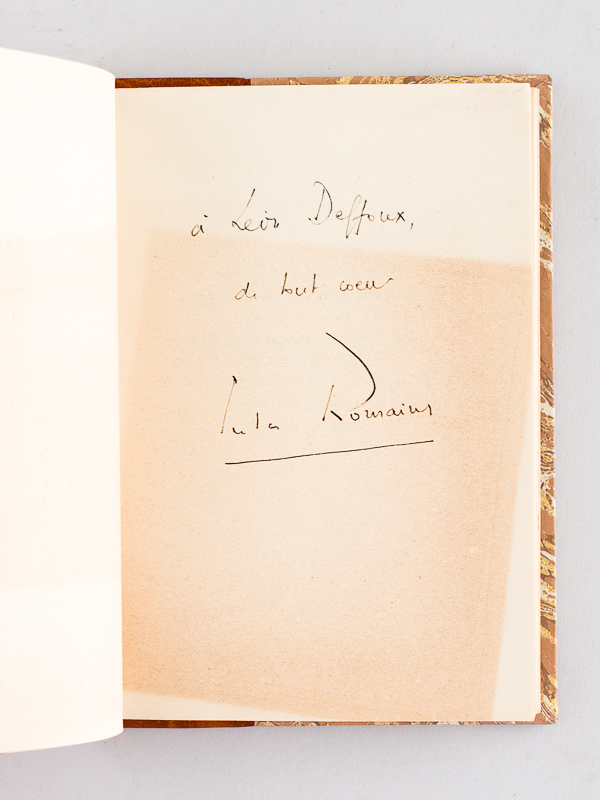 à Léon Deffoux,
de tout coeur
Jules Romains